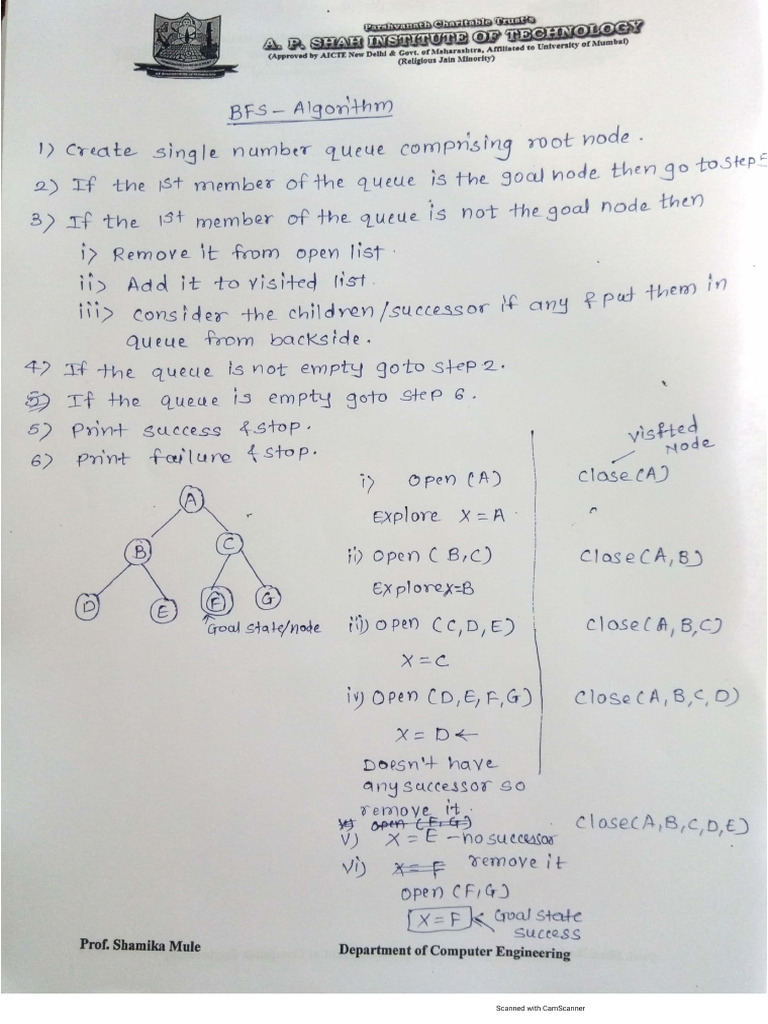 Parshvanath Charitable Trust's
A. P. SHAH INSTITUTE OF TECHNOLOGY
(Approved by AICTE New Delhi & Govt. of Maharashtra, Affiliated to University of Mumbai)
(Religious Jain Minority)
BFS - Algorithm
1) Create single number queue comprising root node.
2) If the 1st member of the queue is the goal node then go to step 5
3) If the 1st member of the queue is not the goal node then
i) Remove it from open list.
ii) Add it to visited list.
iii) consider the children/successor if any & put them in
queue from backside.
4) If the queue is not empty goto step 2.
5) If the queue is empty goto step 6.
5) Print success & stop.
6) Print failure & stop.
visited
Node
i) open (A)
close(A)
Explore X = A
"
A
B
C
D
E
F
G
Goal state/node
ii) open ( B, C)
close(A, B)
Explore X=B
iii) open (C, D, E)
close(A, B, C)
X = C
iv) open (D, E, F, G)
close(A, B, C, D)
X = D ←
Doesn't have
any successor so
remove it.
v) open (F, G)
close(A, B, C, D, E)
v) X = E - no successor
remove it
vi) X = F
open (F, G)
X = F ← Goal state
success
Prof. Shamika Mule
Department of Computer Engineering
Scanned with CamScanner